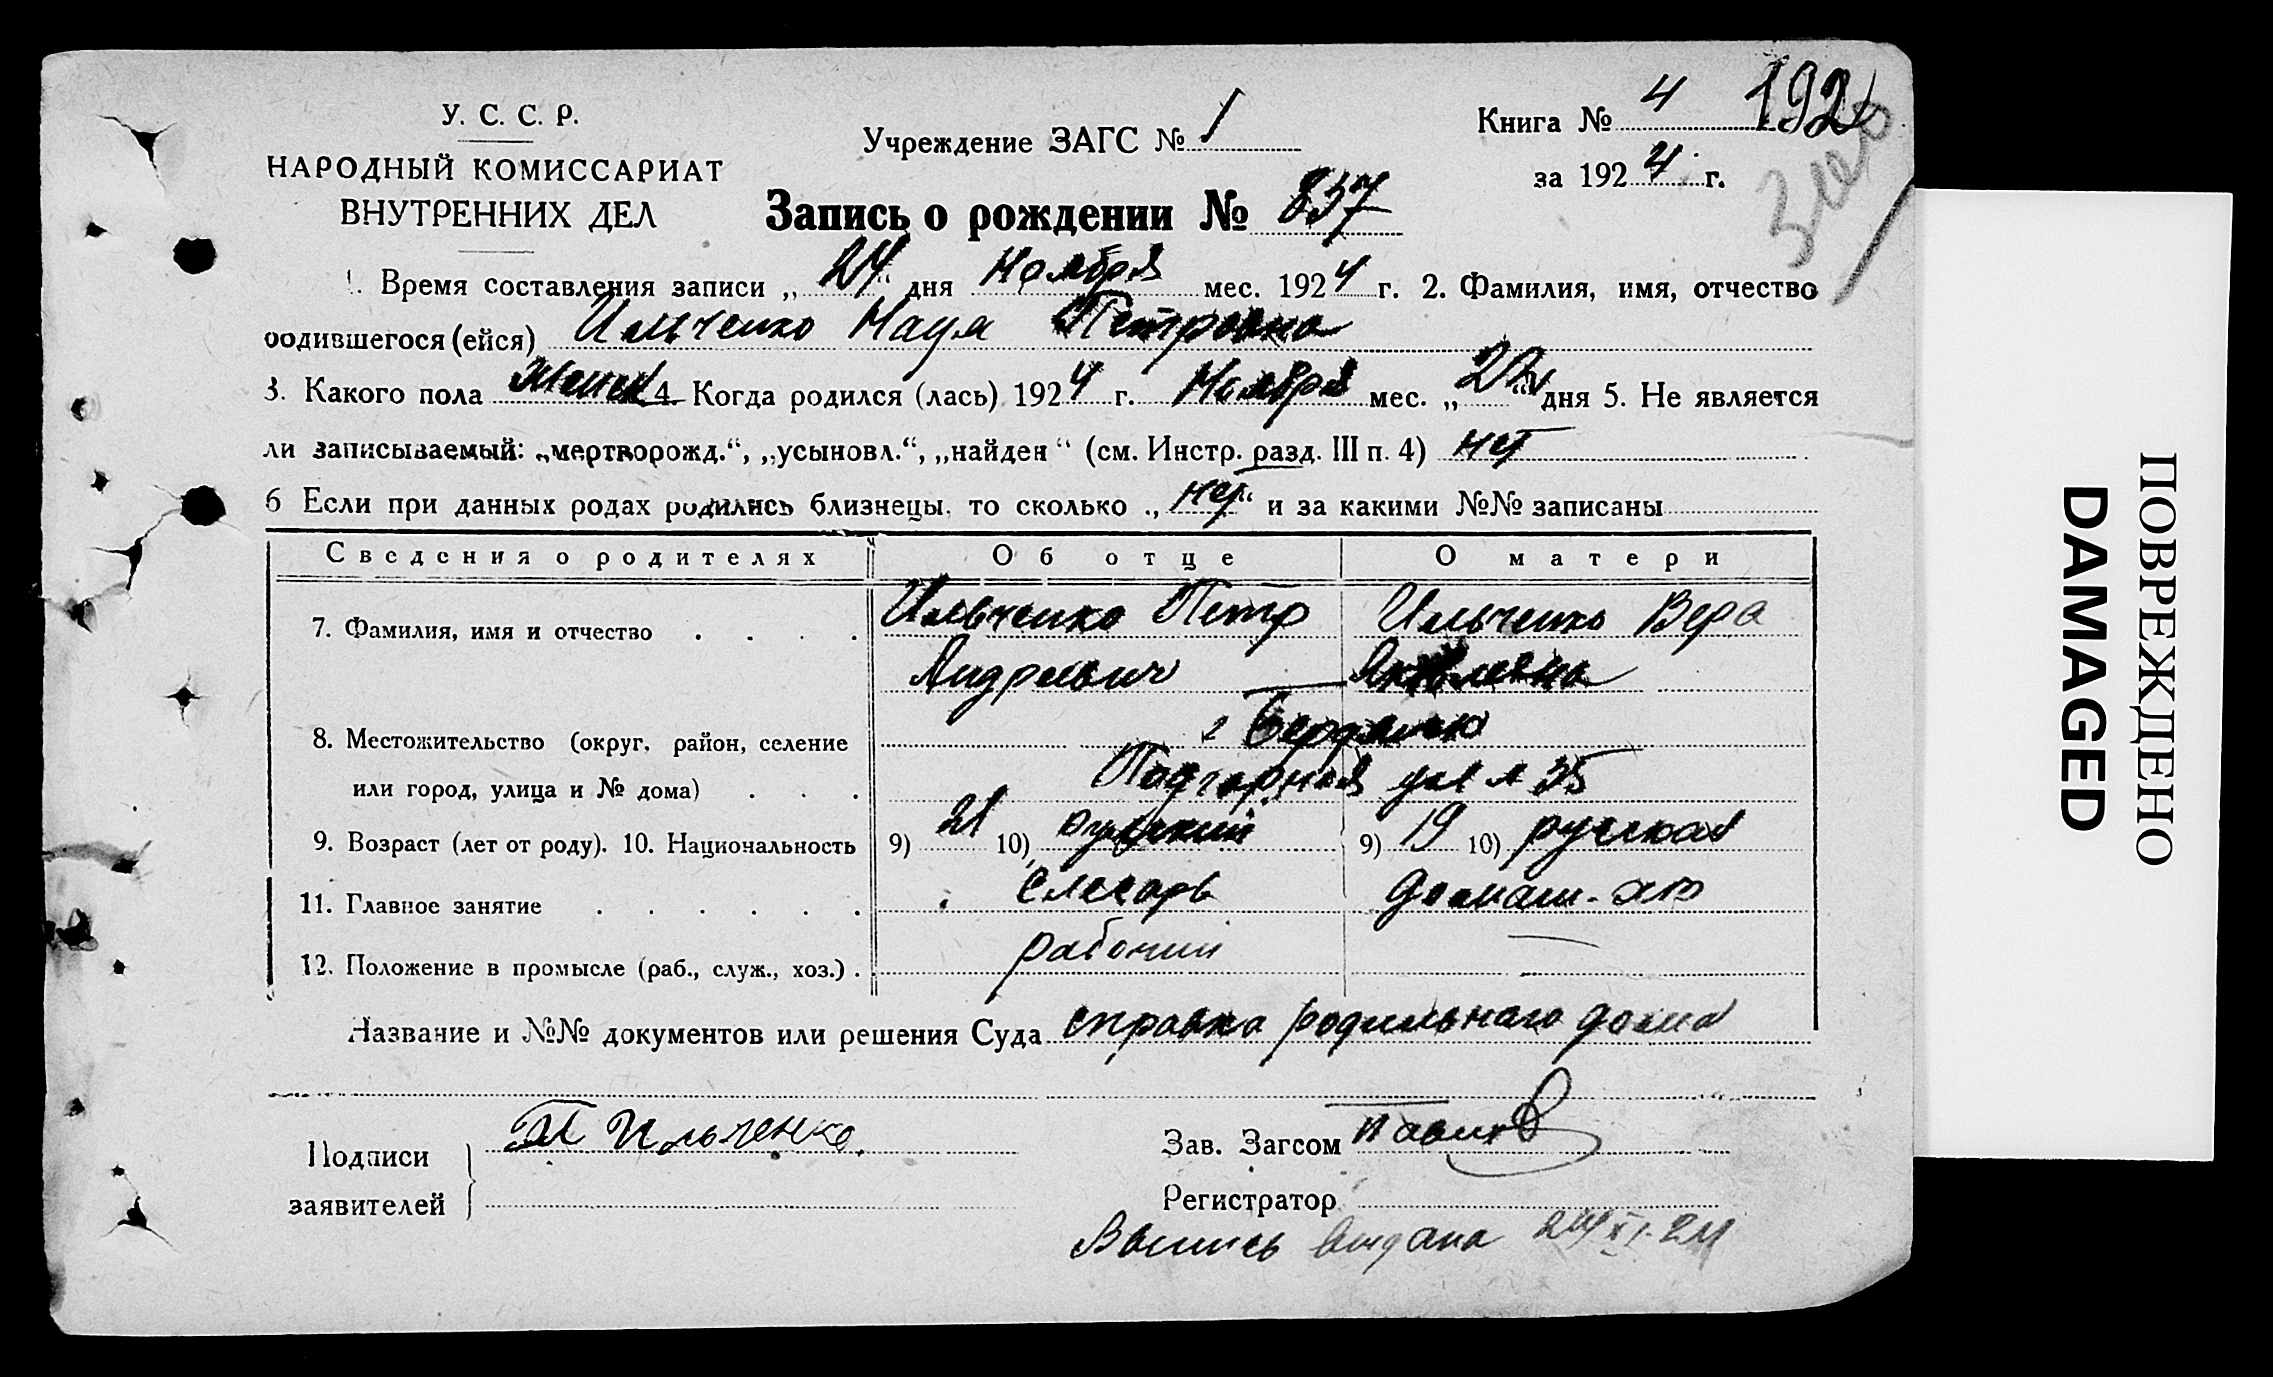 У. С. С. Р.
НАРОДНЫЙ КОМИССАРИАТ
ВНУТРЕННИХ ДЕЛ
Учреждение ЗАГС № 1
Книга № 4 192
за 1924 г.
Запись о рождении № 837
1. Время составления записи „24“ дня Ноября мес. 1924 г. 2. Фамилия, имя, отчество
родившегося (ейся) Ильченко Петровна
3. Какого пола Женск 4. Когда родился (лась) 1924 г. Ноября мес. „22“ дня 5. Не является
ли записываемый: „мертворожд.“, „усыновл.“, „найден“ (см. Инстр. разд. III п. 4) нет
6 Если при данных родах родились близнецы, то сколько „нет“ и за какими №№ записаны
Сведения о родителях Об отце О матери
7. Фамилия, имя и отчество . . . . Ильченко Петр Ильченко Вера
Андреевич Яковлевна
8. Местожительство (округ, район, селение г Бердянск
или город, улица и № дома) . . . Подгорная ул № 35
9. Возраст (лет от роду). 10. Национальность 9) 21 10) русский 9) 19 10) русская
11. Главное занятие . . . . . . слесарь домаш. хоз
12. Положение в промысле (раб., служ., хоз.) . рабочий —
Название и №№ документов или решения Суда справка родильного дома
Подписи
заявителей
П Ильченко.
Зав. Загсом
Регистратор
Выпись выдана 24/XI-24
ПОВРЕЖДЕНО
DAMAGED